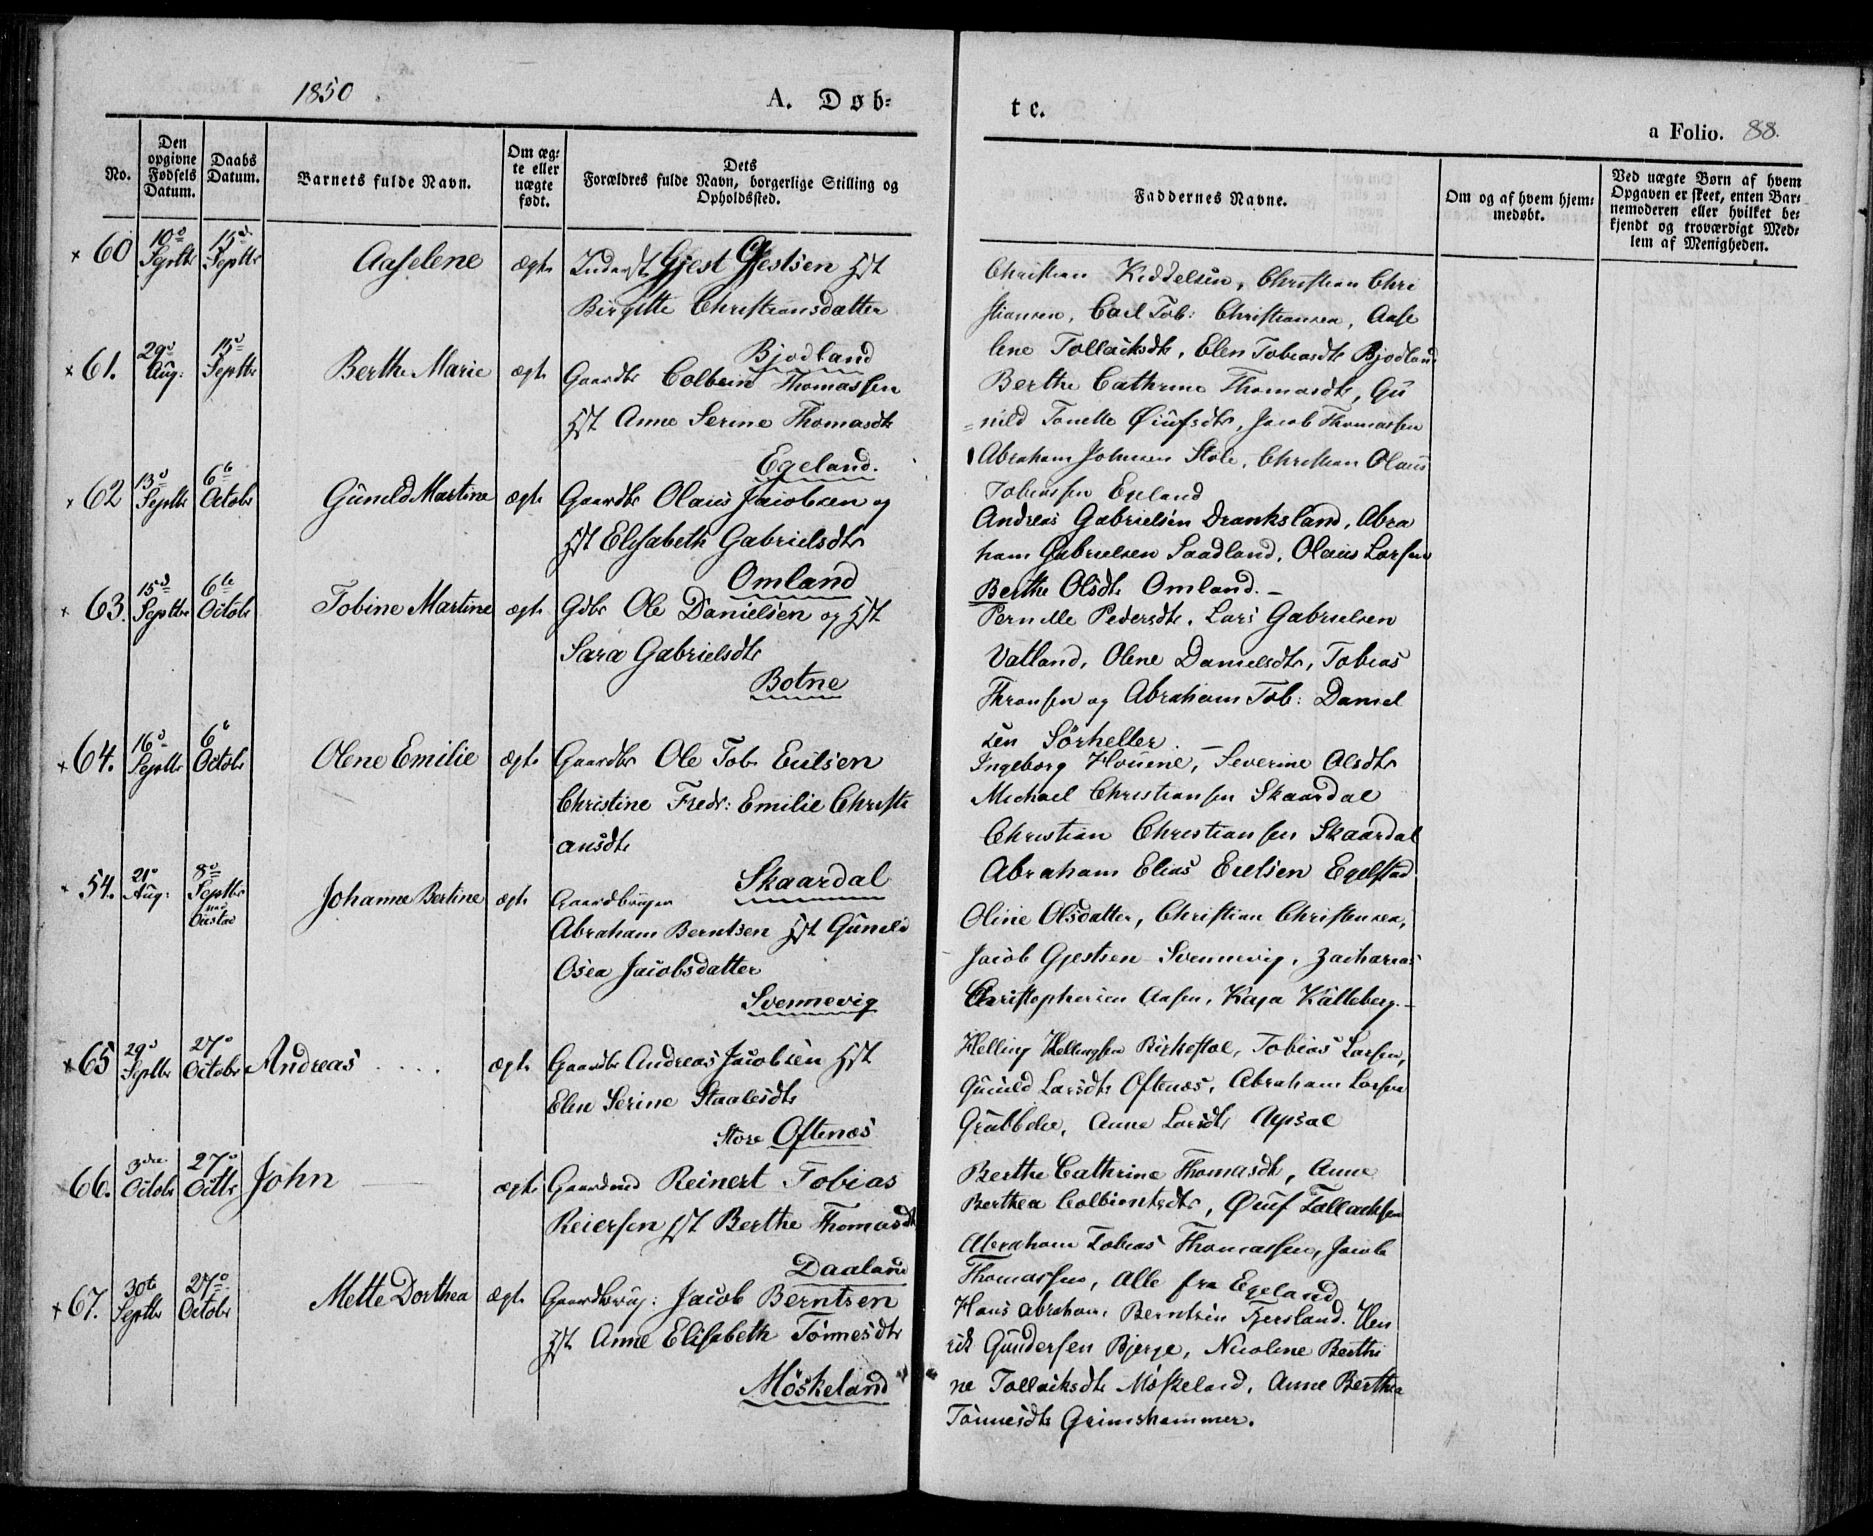 1850
A. Døb=
te.
a Folio. 88.
No.
Den opgivne Fødsels Datum.
Daabs Datum.
Barnets fulde Navn.
Om ægte eller uægte født.
Dets Forældres fulde Navn, borgerlige Stilling og Opholdssted.
Faddernes Navne.
Om og af hvem hjemmedøbt.
Ved uægte Børn af hvem Opgaven er skeet, enten Barnemoderen eller hvilket bekjendt og troværdigt Medlem af Menigheden.
60 10 Septbr 15 Septbr Aaselene ægte Gjest Gjestsen
Birgitte Christiansdatter
Bjodland
Christian Keddelsen, Christian Chri
stiansen, Carl Tob: Christiansen, Aase
lene Tollaksdtr, Elen Tobiasdtr Bjodland
61. 29 Aug: 15 Septbr Berthe Marie ægte Gaardbr Colbein Thomassen
Anne Serine Thomasdtr
Egeland.
Berthe Cathrine Thomasdtr, Gu
nild Tonette Øiufsdtr, Jacob Thomassen
Abraham Johnsen Stole, Christian Olaus
Tobiassen Egeland
62 13 Septbr 6 Octobr Guneld Martine ægte Gaardbr Olaus Jacobsen og
Elisabeth Gabrielsdtr
Omland
Andreas Gabrielsen Dranksland, Abra
ham Gabrielsen Saadland, Olaus Larsen
Berthe Olsdtr Omland.
63. 15 Septbr 6te Octobr Tobine Martine ægte Gdbr Ole Danielsen og
Sara Gabrielsdtr
Botne
Pernille Pedersdtr, Lars Gabrielsen
Vatland, Olene Danielsdtr, Tobias
Thronsen og Abraham Tob: Daniel
sen Sørheller.
64. 16 Septbr 6 Octobr Olene Emilie ægte Gaardbr Ole Tob Eielsen
Christine Fredr: Emilie Christi
ansdtr
Skaardal
Ingeborg Houene, Severine Olsdtr
Michael Christiansen Skaardal
Christian Christiansen Skaardal
Abraham Elias Eielsen Egelstad
54. 21 Aug: 8 Septbr Johanne Bertine ægte Gaardbruger
Abraham Berntsen Guneld
Osea Jacobsdatter
Svennevig
Oline Olsdatter, Christian Christensen,
Jacob Gjestsen Svennevig, Zacharias
Christophersen Aasen, Kaja Kalleberg.
65 29 Septbr 27 Octobr Andreas ægte Gaardbr Andreas Jacobsen
Elen Serine Staalesdtr
Store Oftenæs
Helling Hellingsen Birkestøl, Tobias Larsen,
Gunild Larsdtr Oftenæs, Abraham Larsen
Grubbelie, Anne Larsdtr Upsal
66. 3die Octobr 27 Octbr John ægte Gaardmd Reinert Tobias
Reiersen Berthe Thomasdtr
Daaland
Berthe Cathrine Thomasdtr, Anne
Berthea Colbiornsdtr, Øiuf Tollacksen
Abraham Tobias Thomassen, Jacob
Thomassen, Alle fra Egeland
67. 30te Septbr 27 Octobr Mette Dorthea ægte Gaardbrug: Jacob Berntsen
Anne Elisabeth Tønnesdtr
Møskeland
Hans Abraham Berntsen Fjersland, Hen
rik Gundersen Bjerge, Nicoline Berthi
ne Tollaksdtr Møskeland, Anne Berthea
Tønnesdtr Grimshammer.